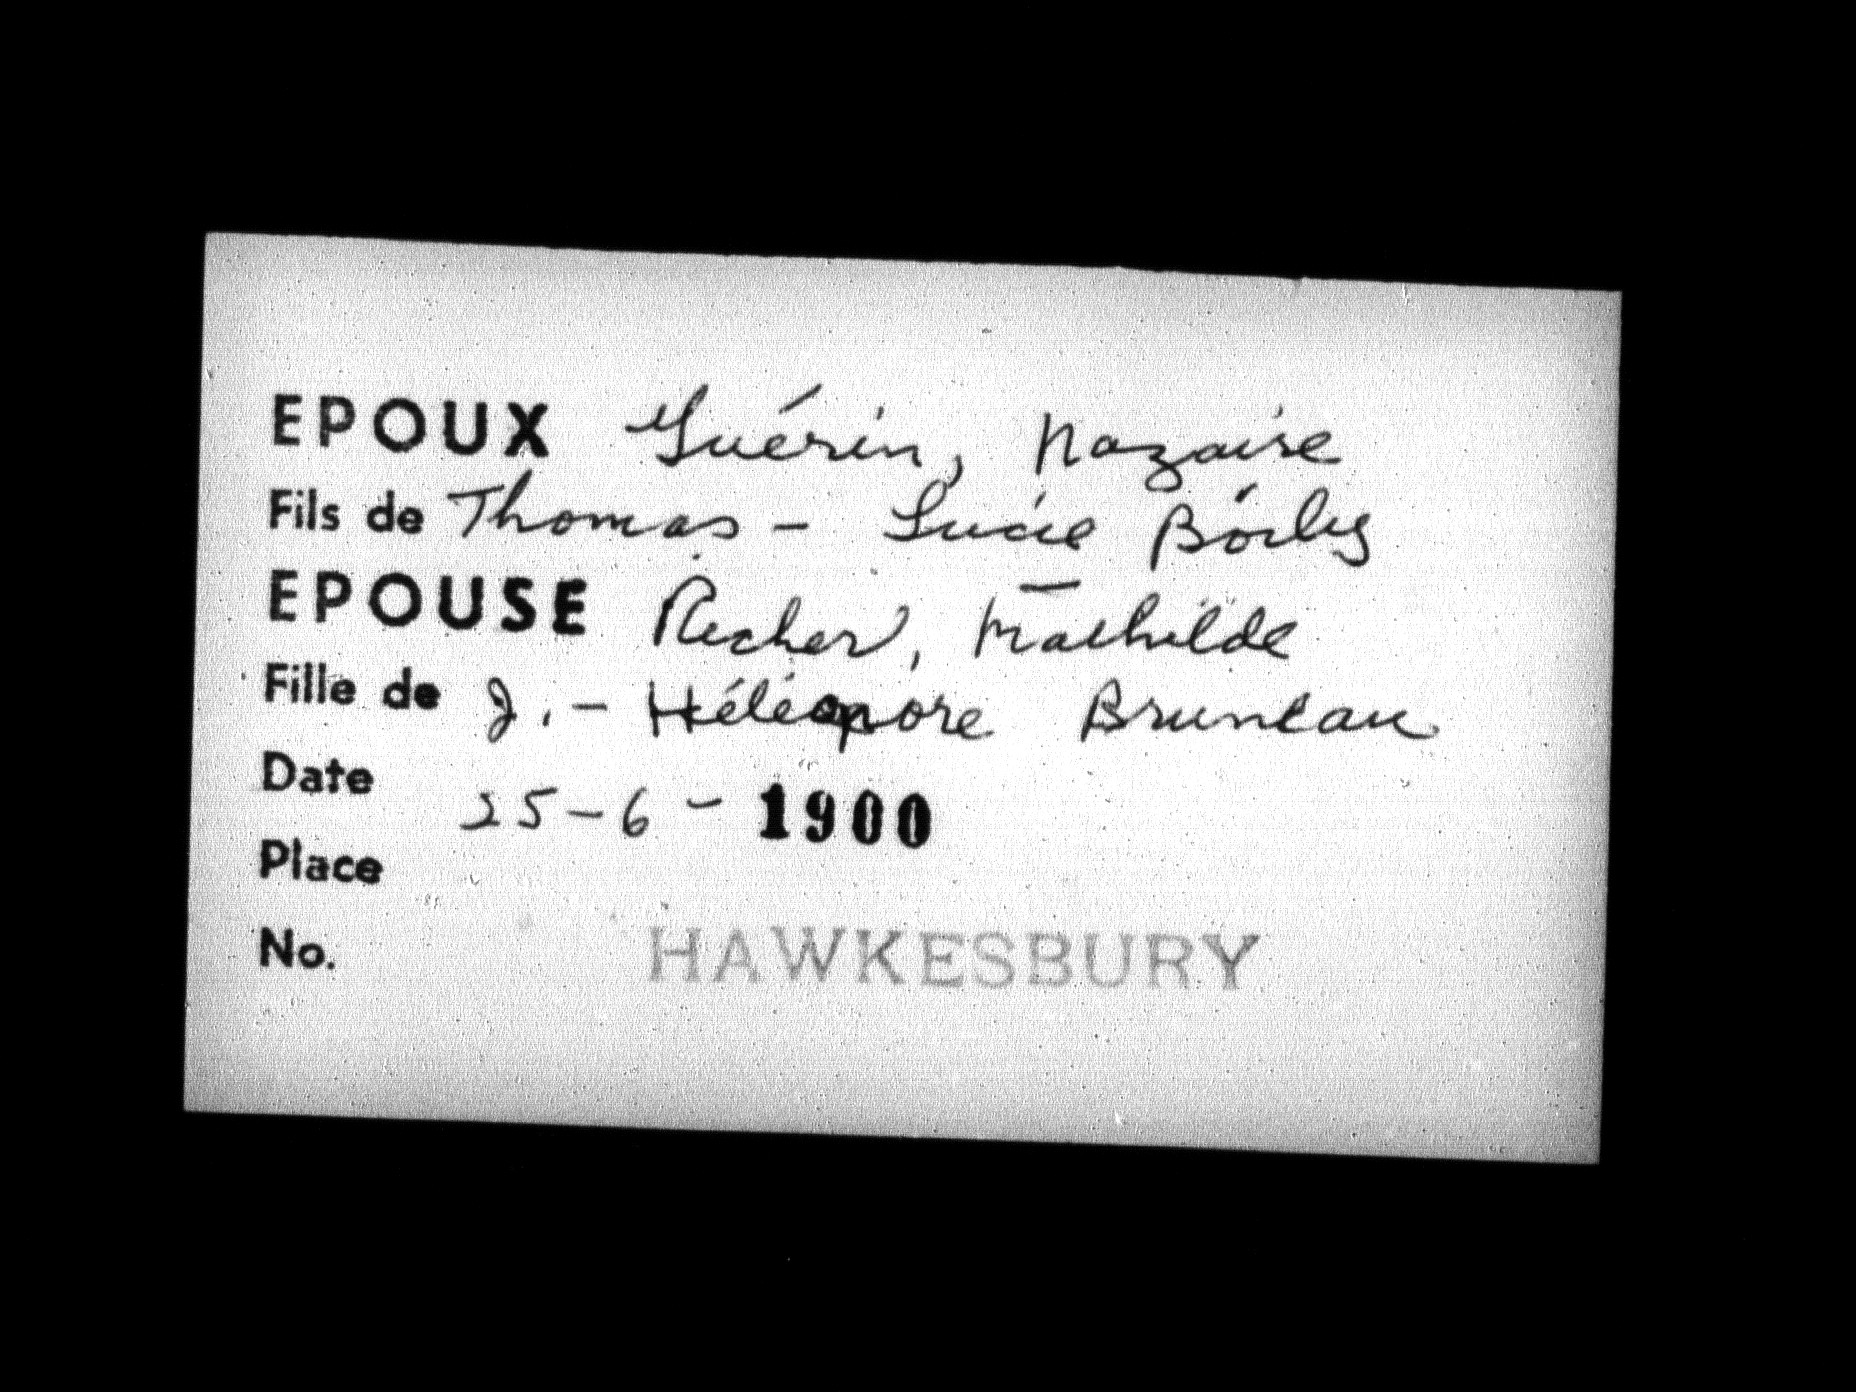 EPOUX Guérin, Nazaire
Fils de Thomas - Lucie
EPOUSE Richer, Mathilde
Fille de J. - Bruneau
Date 25-6-1900
Place
No. HAWKESBURY